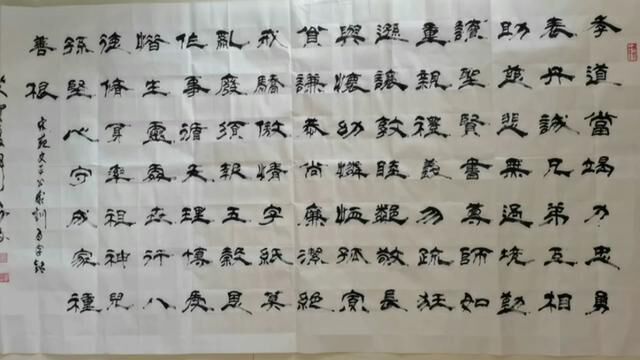 孝道當竭力忠勇
表丹誠兄弟互相
助慈悲無過境勤
讀聖賢書尊師如
重親禮義勿疏狂
遜讓敦睦鄰敬長
與懷幼憐恤孤寡
貧謙恭尚廉潔絕
戒驕傲情字紙莫
亂廢須報五穀恩
作事循天理博愛
惜生靈處世行八
德修身率祖神兒
孫堅心守成家種
善根
范文正公家訓百字銘